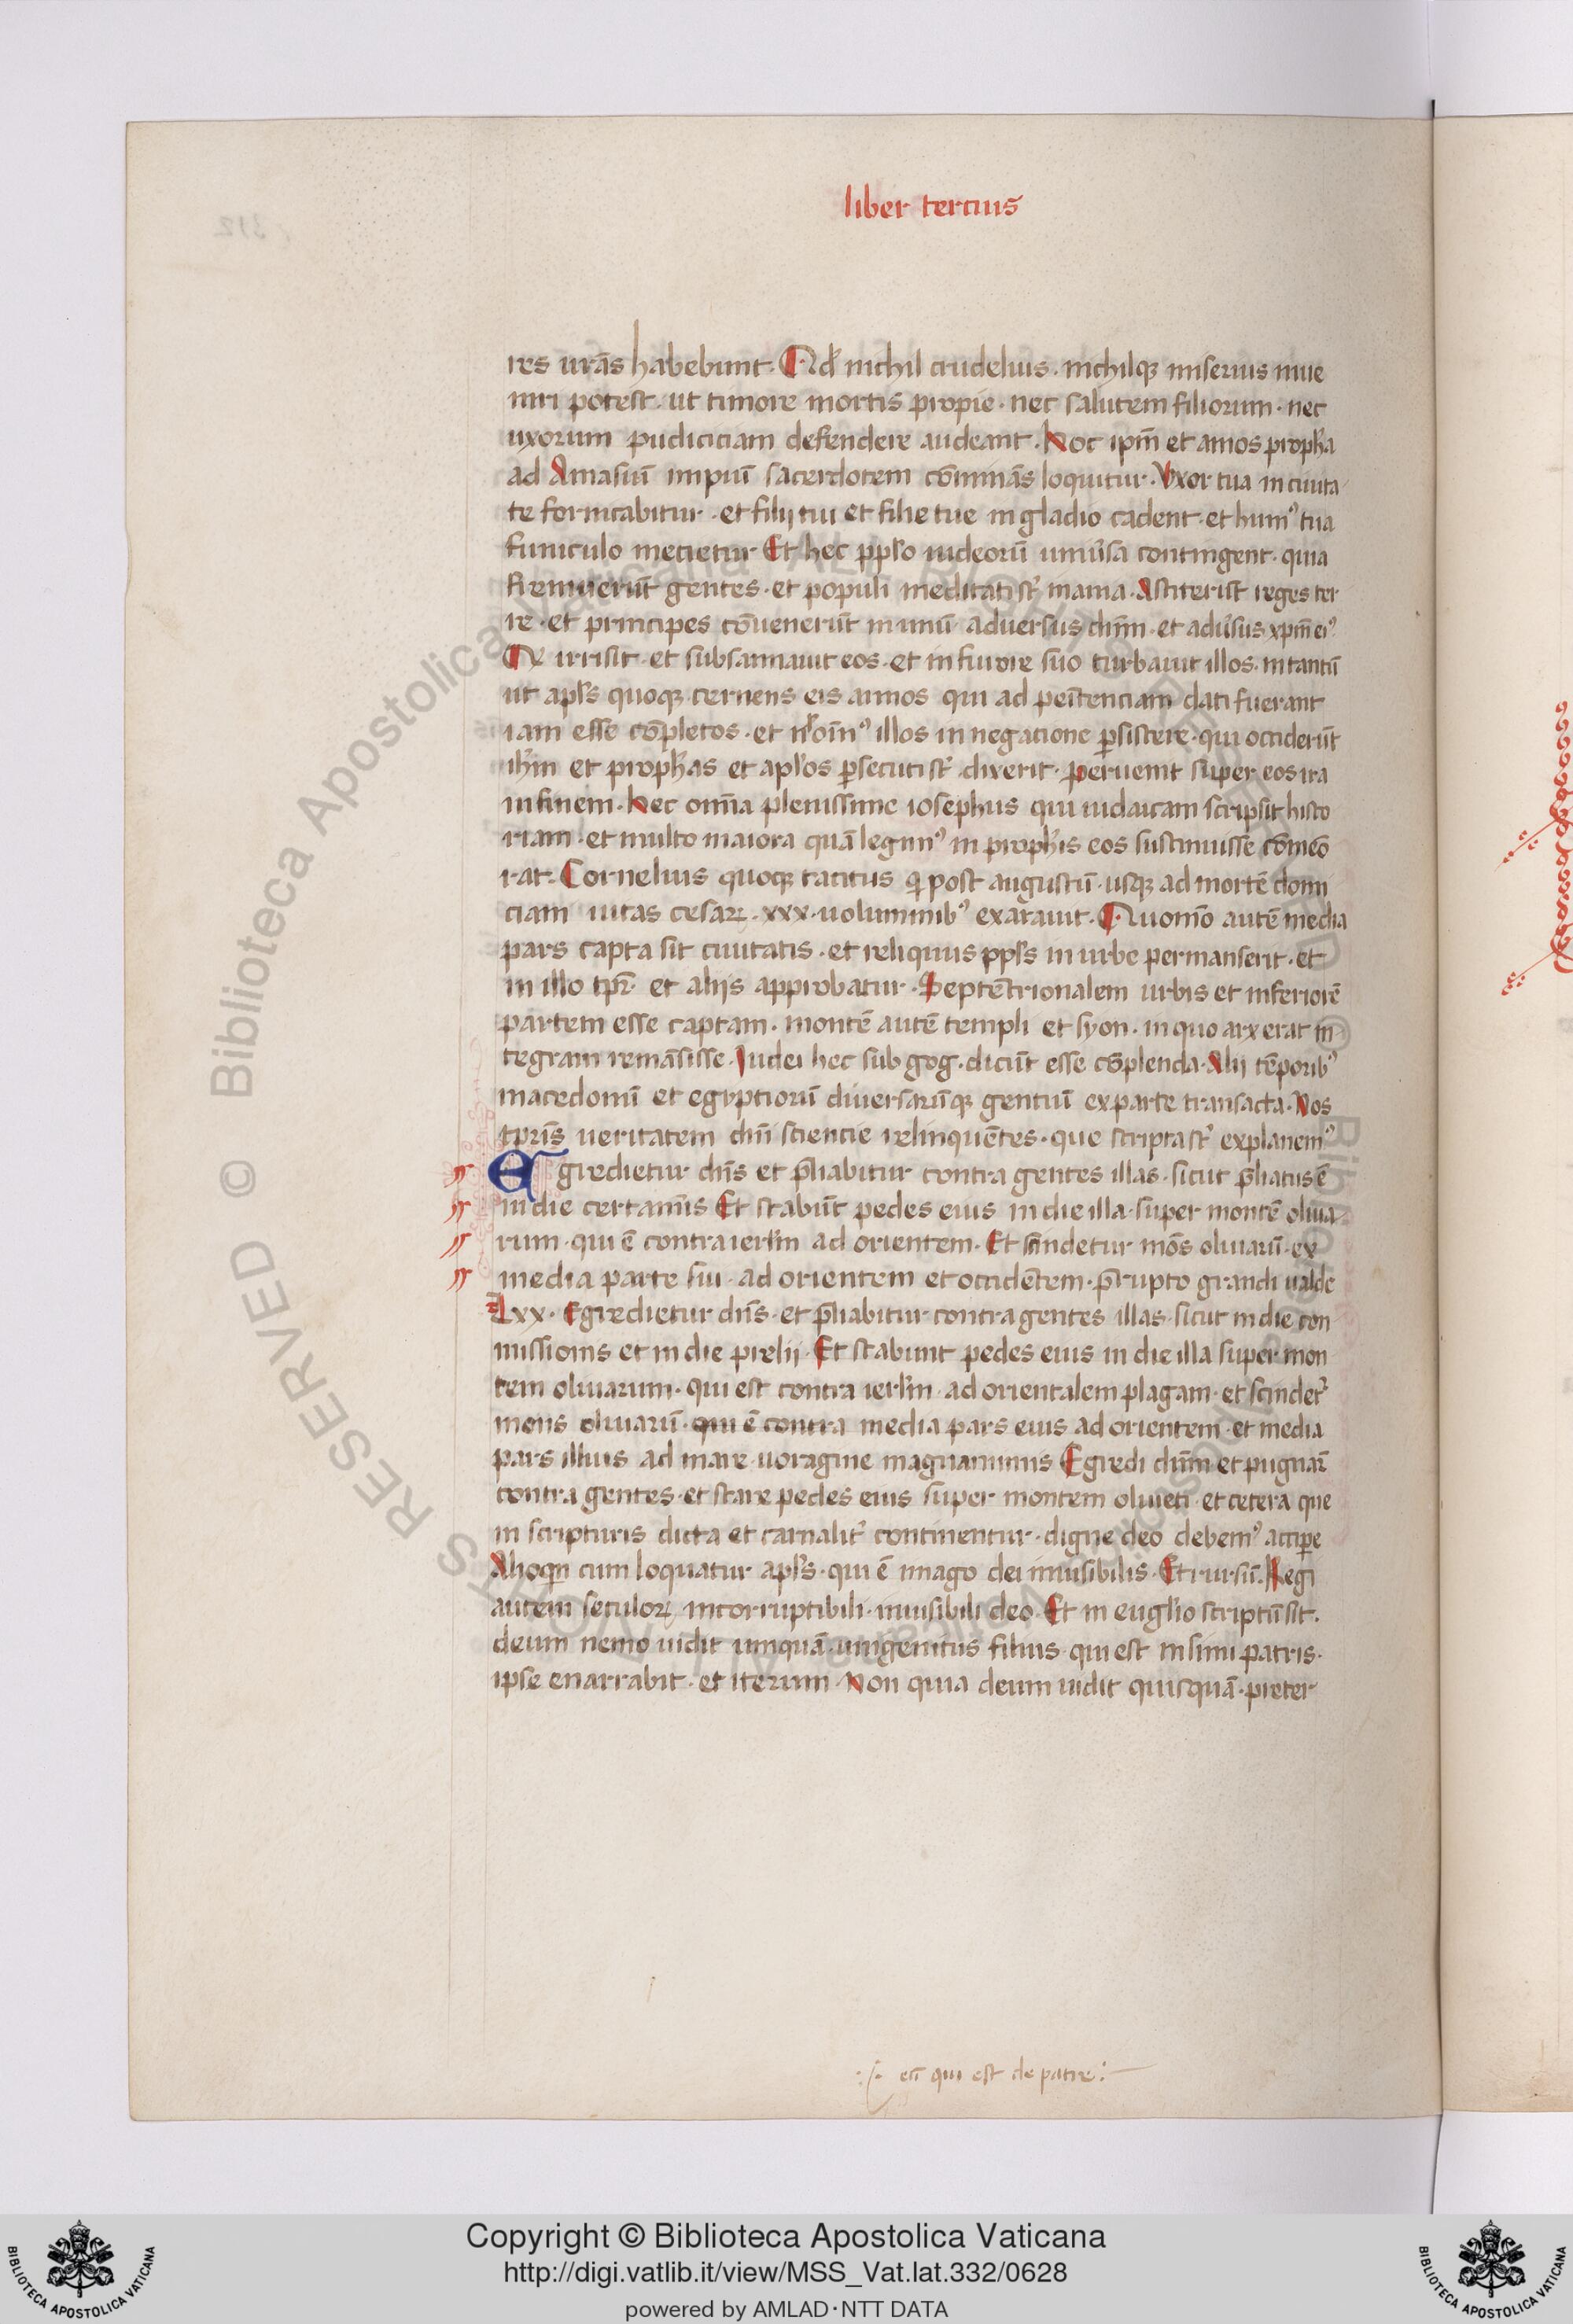 liber tercius
res urās habebunt. Qd nichil crudelius. nichilqꝫ miserius inue
niri potest. ut timore mortis propie. nec salutem filiorum. nec
uxorum pudiciciam defendere audeant. Hoc ipm̄ et amos propha
ad Amasiū impiū sacerdotem cōminās loquitur. Vxor tua in ciuita
te fornicabitur. et filij tui et filie tue in gladio cadent. et humꝰ tua
funiculo metietur Et hec pplo iudeorū uniūsa contingent. quia
fremuerūt gentes. et populi meditati st̄ inania. Astiterūt reges ter
re. et principes cōuenerūt in unū aduersus dn̄m. et adūsus xpm̄ eiꝰ
Qi irrisit. et subsannauit eos. et in furore suo turbauit illos. in tantū
ut apls quoqꝫ cernens eis annos qui ad penitenciam dati fuerant
iam esse cōpletos. et illos in negatione ꝑsistere. qui occiderūt
ihm et prophas et aplos ꝑsecuti st̄ dixerit. peruenit super eos ira
in finem. Hec omīa plenissime iosephus qui iudaicam scripsit histo
riam. et multo maiora quā legimꝰ in prophis eos sustinuisse cōmeō
rat. Cornelius quoqꝫ tacitus qi post augustū. usqꝫ ad mortē domi
ciani uitas cesaꝝ. xxx. uoluminibꝰ exarauit. Quomō autē media
pars capta sit ciuitatis. et reliquus ppls in urbe permanserit. et
in illo tpr̄. et alijs approbatur. Septētrionalem urbis et inferiorē
partem esse captam. montē autē templi et syon. in quo arx erat in
tegram remāsisse. Iudei hec sub gog. dicūt esse cōplenda. Alij tēporibꝰ
macedonū et egyptiorū diuersarūqꝫ gentiū ex parte transacta. Nos
tpris ueritatem dn̄i sciencie relinquētes. que scripta st̄ explanemꝰ
Egredietur dn̄s et p̄liabitur contra gentes illas. sicut p̄liatus ē
in die certamīs Et stabūt pedes eius in die illa. super montē oliua
rum. qui ē contra ierlm ad orientem. Et scindetur mōs oliuarū. ex
media parte sui. ad orientem et occidētem. p̄rupto grandi ualde
Lxx. Egredietur dn̄s. et p̄liabitur contra gentes illas. sicut in die con
missionis et in die prelij. Et stabunt pedes eius in die illa super mon
tem oliuarum. qui est contra ierlm. ad orientalem plagam. et scindet᷑
mons oliuarū. qui ē contra media pars eius ad orientem. et media
pars illius ad mare. uoragine magna nimis Egredi dn̄m et pugnar̄
contra gentes. et stare pedes eius super montem oliueti. et cetera que
in scripturis dicta et carnalit᷑ continentur. digne deo debemꝰ accipe
Alioqn cum loquatur apls. qui ē imago dei inuisibilis. Et rursū. Regi
autem seculoꝝ incorruptibili. inuisibili deo. Et in euglio scriptū sit.
deum nemo uidit umquā. unigenitus filius. qui est in sinu patris.
ipse enarrabit. et iterum. Non quia deum uidit quisquā. preter
eū qui est de patre:
Copyright © Biblioteca Apostolica Vaticana
http://digi.vatlib.it/view/MSS_Vat.lat.332/0628
powered by AMLAD·NTT DATA